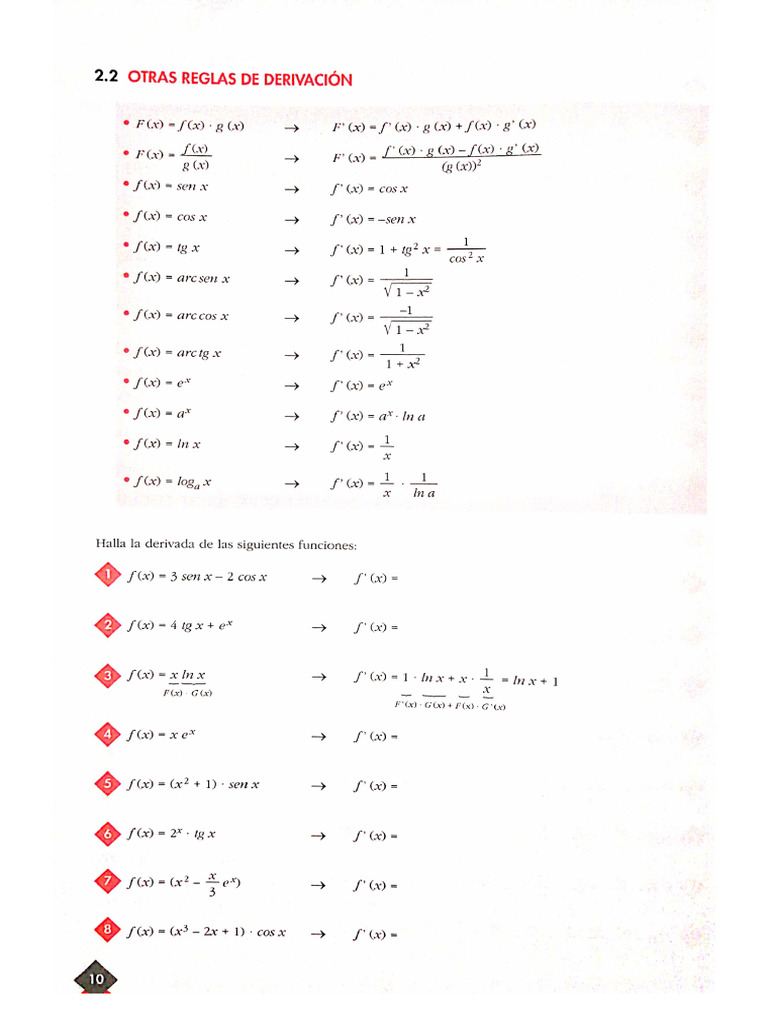 2.2 OTRAS REGLAS DE DERIVACIÓN
• F(x) = f(x) · g (x) → F' (x) = f' (x) · g (x) + f(x) · g' (x)
• F(x) = f(x) / g (x) → F' (x) = f' (x) · g (x) – f(x) · g' (x) / (g (x))²
• f(x) = sen x → f' (x) = cos x
• f(x) = cos x → f' (x) = –sen x
• f(x) = tg x → f' (x) = 1 + tg² x = 1 / cos² x
• f(x) = arc sen x → f' (x) = 1 / √(1 – x²)
• f(x) = arc cos x → f' (x) = –1 / √(1 – x²)
• f(x) = arc tg x → f' (x) = 1 / 1 + x²
• f(x) = eˣ → f' (x) = eˣ
• f(x) = aˣ → f' (x) = aˣ · ln a
• f(x) = ln x → f' (x) = 1 / x
• f(x) = logₐ x → f' (x) = 1 / x · 1 / ln a
Halla la derivada de las siguientes funciones:
1 f(x) = 3 sen x – 2 cos x → f' (x) =
2 f(x) = 4 tg x + eˣ → f' (x) =
3 f(x) = x ln x → f' (x) = 1 · ln x + x · 1 / x = ln x + 1
F(x) · G(x) F'(x) · G(x) + F(x) · G'(x)
4 f(x) = x eˣ → f' (x) =
5 f(x) = (x² + 1) · sen x → f' (x) =
6 f(x) = 2ˣ · tg x → f' (x) =
7 f(x) = (x² – x / 3 eˣ) → f' (x) =
8 f(x) = (x³ – 2x + 1) · cos x → f' (x) =
10